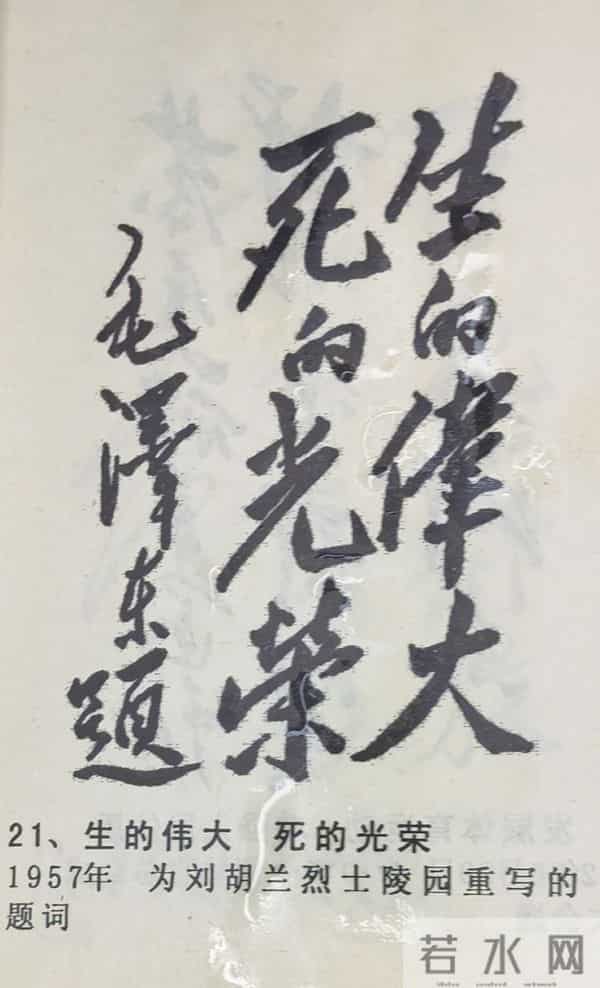 生的偉大
死的光荣
毛澤东题
21、生的伟大 死的光荣
1957年 为刘胡兰烈士陵园重写的
题词
发展体育
若水网